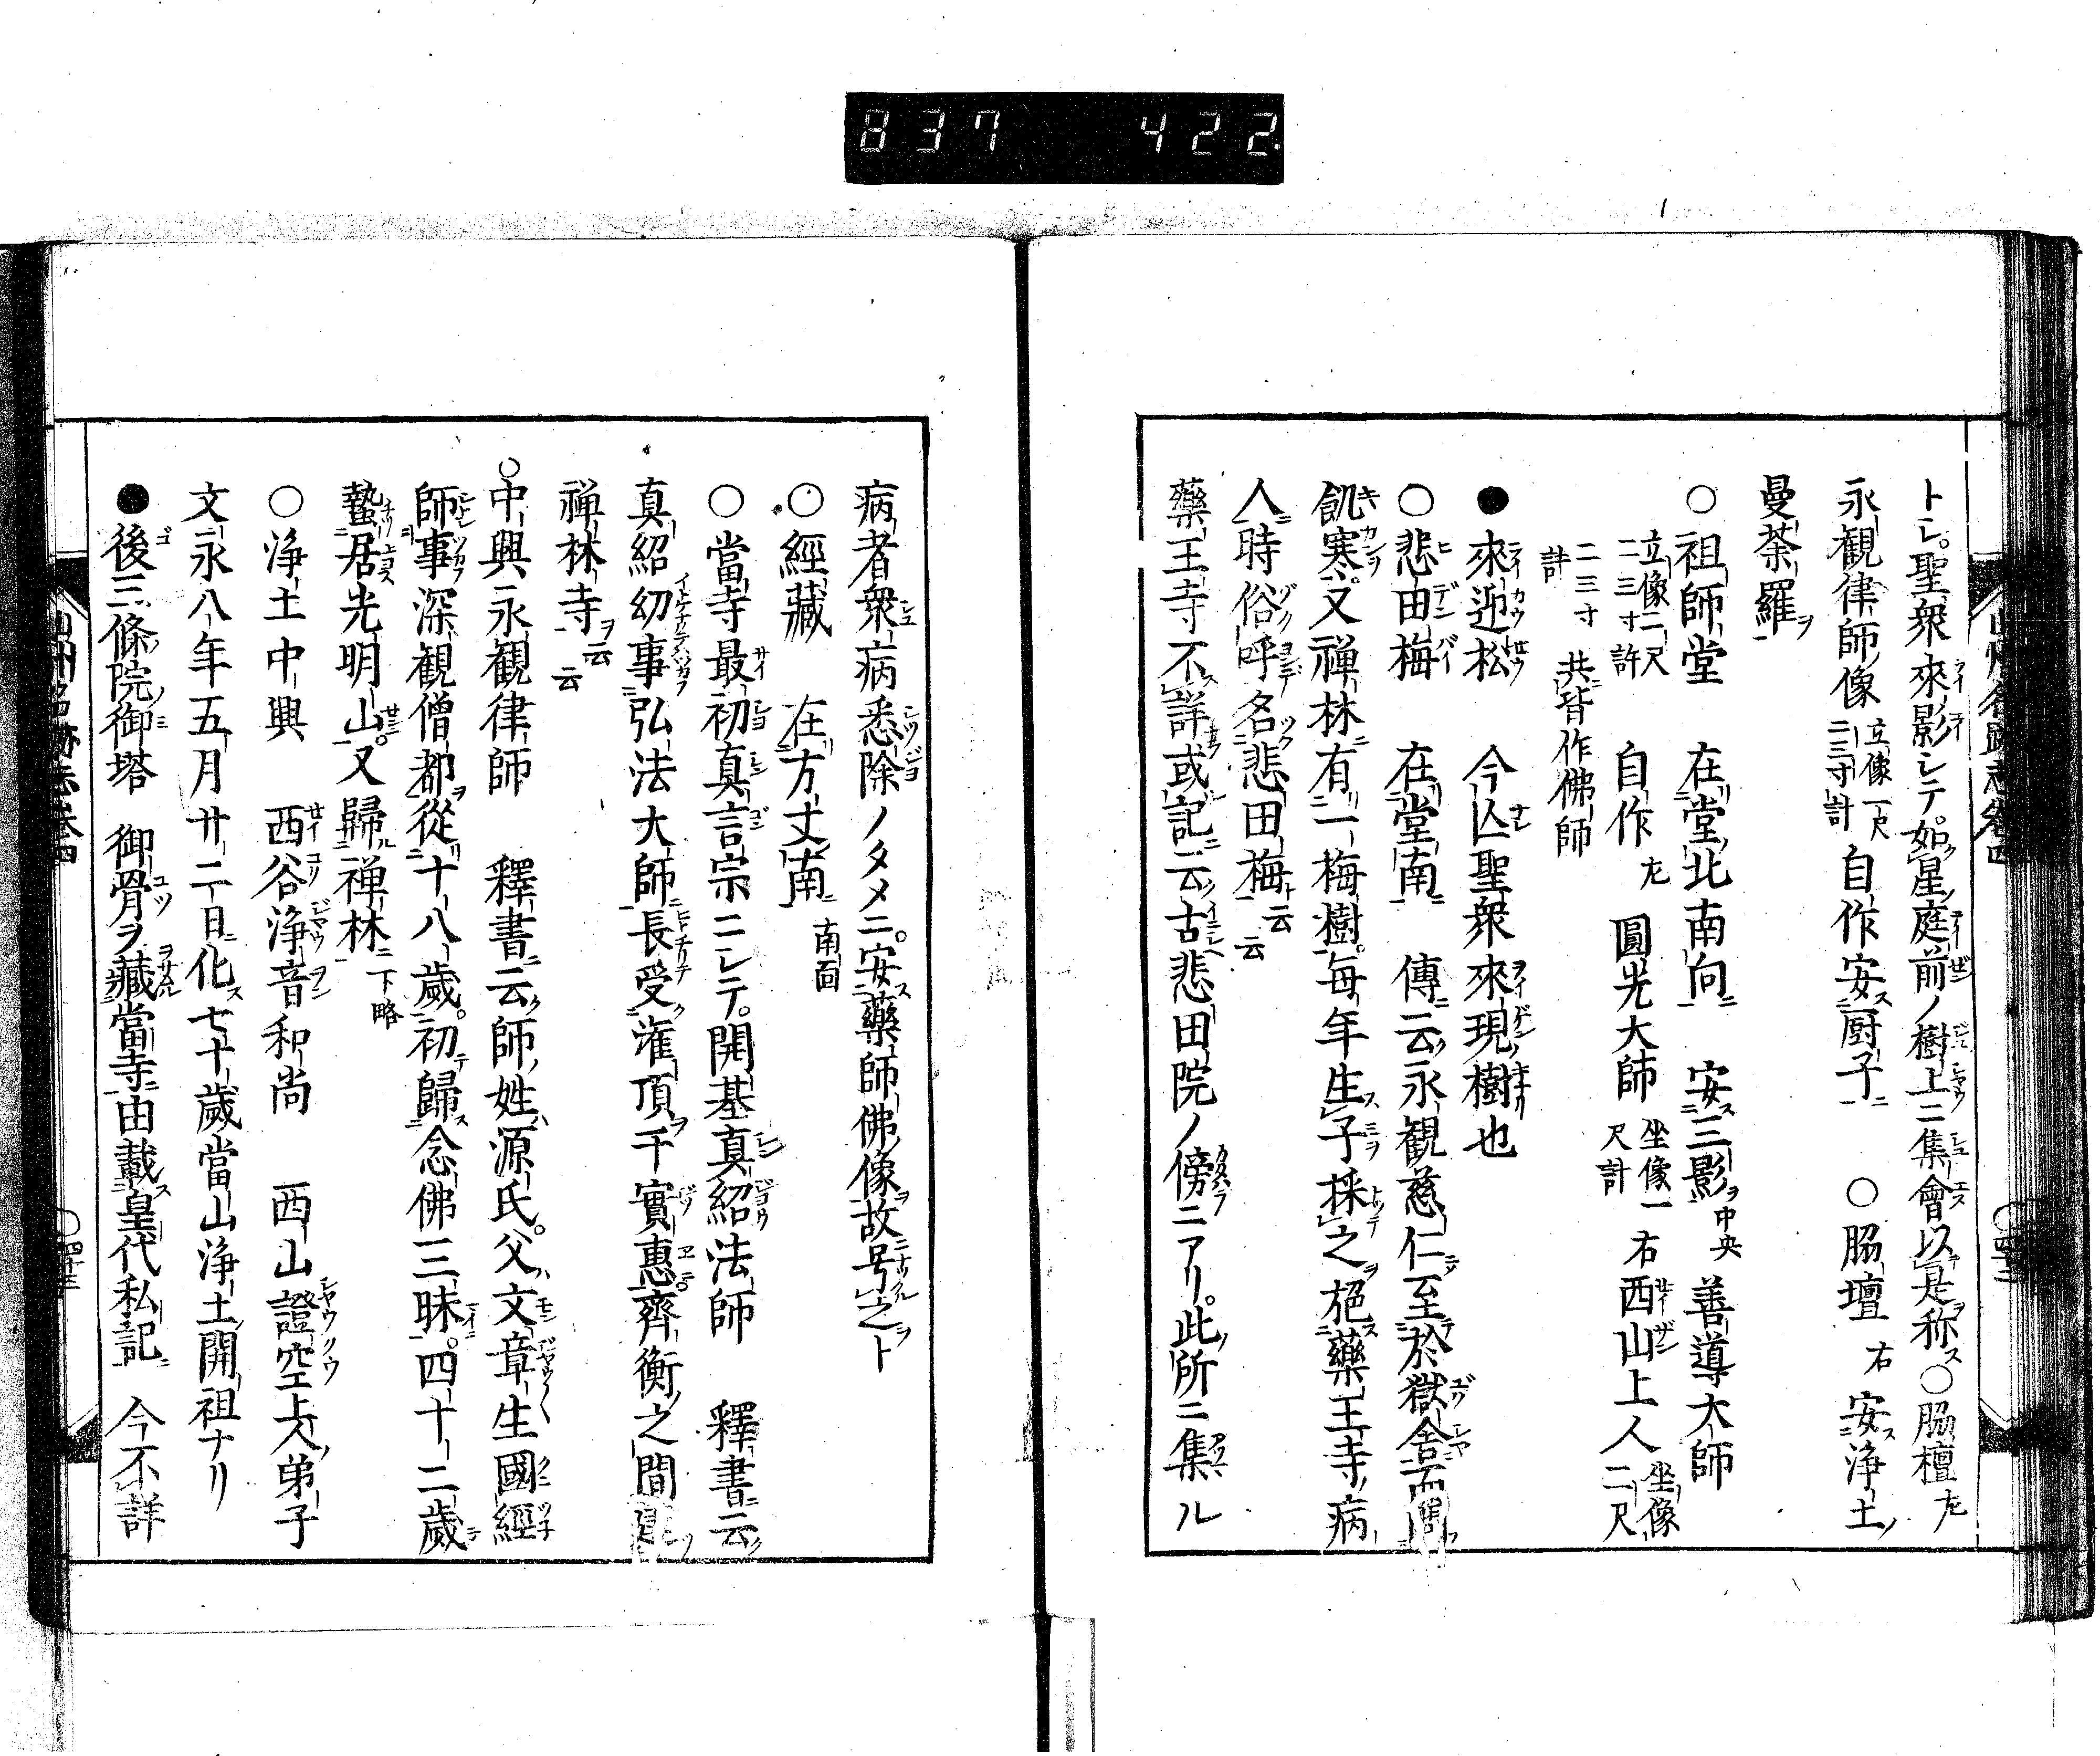 837 422
トシ。聖衆來影シテ。如星庭前ノ樹上ニ集會以是称ス○脇檀 左
永観律師像 立像一尺二三寸計 自作安厨子 ○脇壇 右 安浄土
曼荼羅
○祖師堂 在堂北南向 安三影 中央 善導大師
立像二尺一三寸許 自作 左 圓光大師 坐像一尺計 右 西山上人 坐像二尺
二三寸計 共皆作佛師
●來迎松 今亾聖衆來現樹也
○悲田梅 在堂南 傳云永観慈仁至於獄舎而
飢寒。又禅林有一梅樹。毎年生子採之施藥王寺病
人時俗呼名悲田梅云云
藥王寺不詳或記云古悲田院ノ傍ニアリ。此所ニ集ル
病者衆病悉除ノタメニ。安藥師佛像故号之ト
○經藏 在方丈南 南面
○當寺最初真言宗ニシテ。開基真紹法師 釋書云
真紹幼事弘法大師長受潅頂千實惠。齊衡之間
禅林寺云云
○中興永観律師 釋書云師姓源氏。父文章生國經
師事深観僧都從十八歳。初歸念佛三昧。四十二歳
蟄居光明山。又歸禅林 下略
○浄土中興 西谷浄音和尚 西山證空上人弟子
文永八年五月廿二日化七十歳當山浄土開祖ナリ
●後三條院御塔 御骨ヲ藏當寺由載皇代私記 今不詳